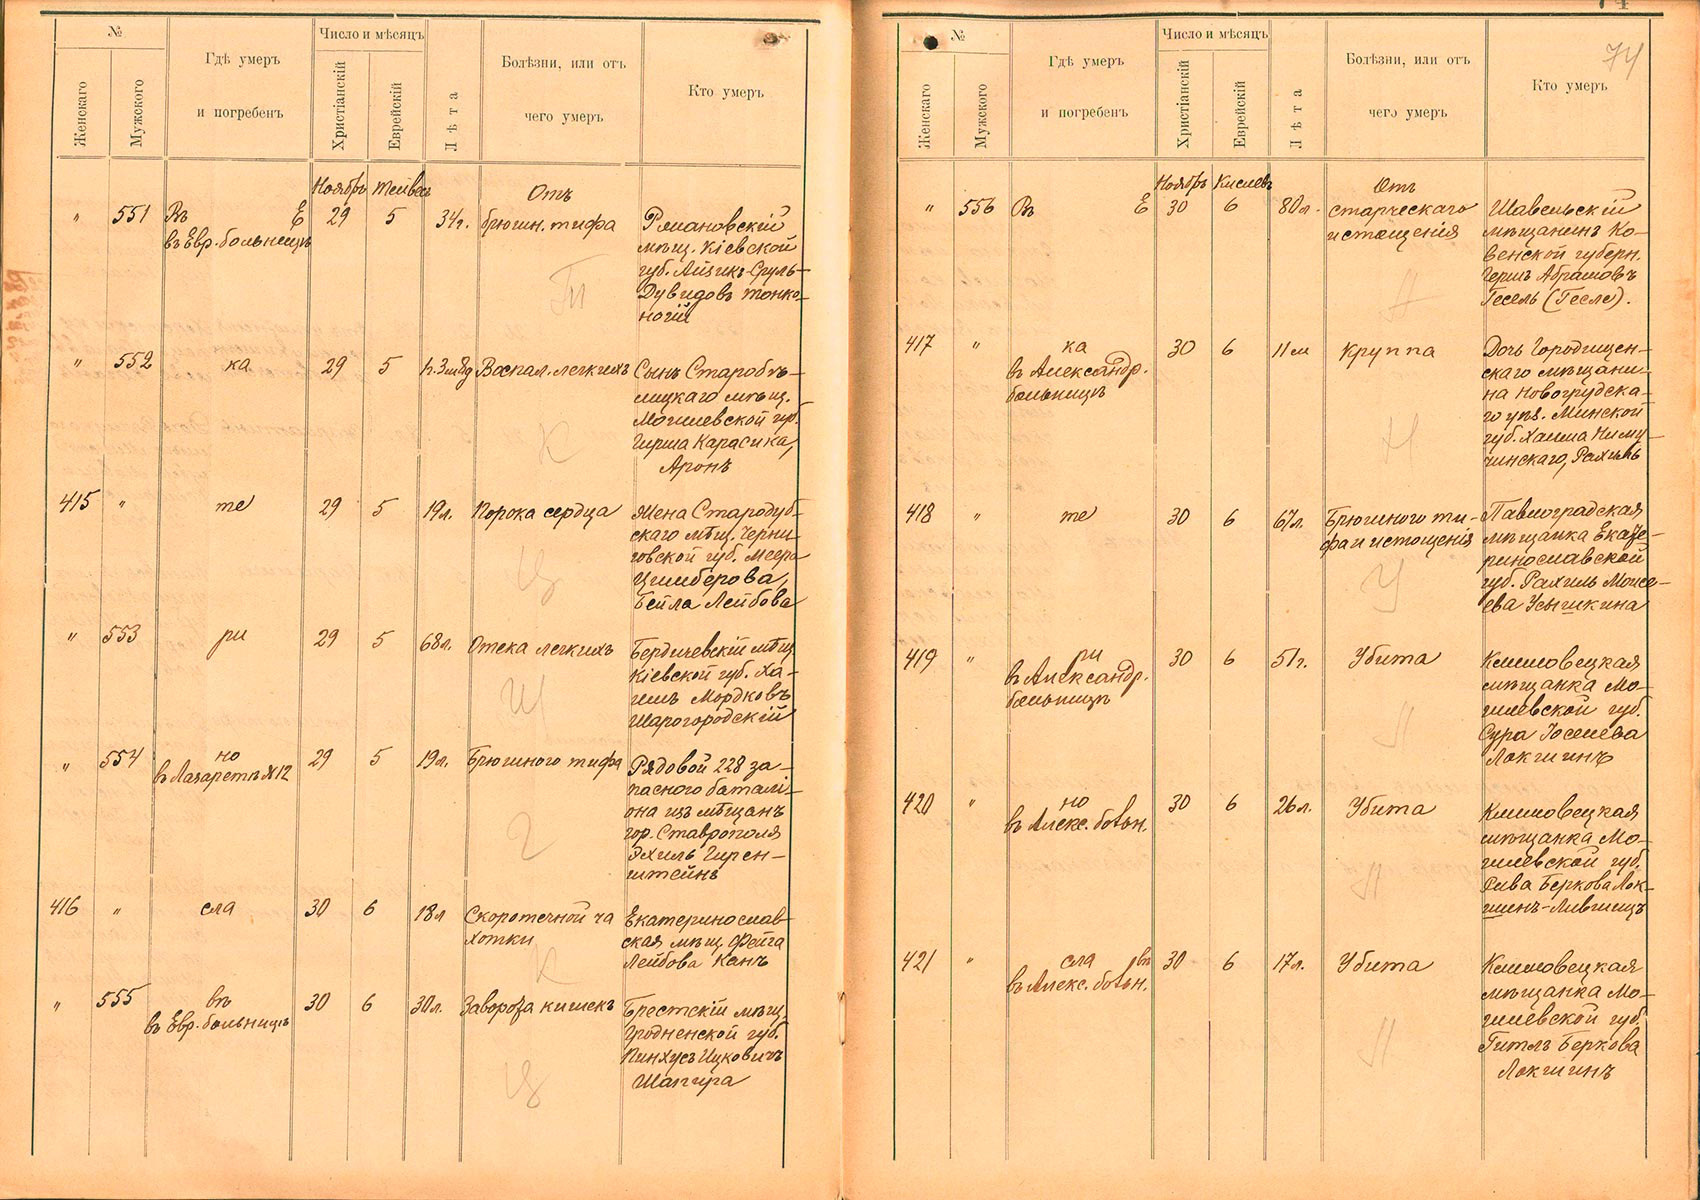 №
Женскаго
Мужского
Гдѣ умеръ
и погребенъ
Число и мѣсяцъ
Христіанскій
Еврейскій
Лѣта
Болѣзни, или отъ
чего умеръ
Кто умеръ
Ноябрь
Отъ
" 551
въ Евр. больницѣ
29 5 34г.
брюшн. тифа
Рмановскій
мѣщ. Кіевской
губ. Айзикъ-Сруль-
Дувидовъ Тонко-
ногій
" 552
ка
29 5
Воспал. легкихъ
Сынъ Старобѣ-
лицкаго мѣщ.
Могилевской губ.
Гирша Карасика,
Аронъ
415 "
те
29 5 19л.
Порока сердца
Жена Стародуб-
скаго мѣщ. Черни-
говской губ. Меера
Цимберова,
Бейла Лейбова
" 553
ри
29 5 68л.
Отека легкихъ
Бердичевскій мѣщ.
Кіевской губ. Ха-
имъ Мордковъ
Шарогородскій
" 554
но
въ Лазаретѣ №12
29 5 19л.
Брюшного тифа
Рядовой 228 за-
паснаго баталі-
она изъ мѣщанъ
гор. Ставрополя
Эхиль Гирен-
штейнъ
416 "
сла
30 6 18л
Скоротечной ча
хотки
Екатеринослав-
ская мѣщ. Фейга
Лейбова Канъ
" 555
въ
въ Евр. больницѣ
30 6 30л.
Заворота кишекъ
Брестскій мѣщ.
Гродненской губ.
Пинхусъ Ицковичъ
Шапира
74
№
Женскаго
Мужского
Гдѣ умеръ
и погребенъ
Число и мѣсяцъ
Христіанскій
Еврейскій
Лѣта
Болѣзни, или отъ
чего умеръ
Кто умеръ
74
Ноябрь Кислевъ
Отъ
" 556
30 6 80л.
старческаго
истощенія
Шавельскій
мѣщанинъ Ко-
венской губерн.
Гершъ Абрамовъ
Гесель (Гесле).
417 "
ка
въ Александр.
больницѣ
30 6 11м
Круппа
Дочь Городищен-
скаго мѣщани-
на Новогрудска-
го уѣз. Минской
губ. Хаима Ниму-
чинскаго, Рахиль
418 "
те
30 6 67л.
Брюшного ти-
фа и истощенія
Павлоградская
мѣщанка Екате-
ринославской
губ. Рахиль Моисе-
ева Усышкина
419 "
ри
въ Александр.
больницѣ
30 6 51г.
Убита
Климовецкая
мѣщанка Мо-
гилевской губ.
Сура Іоселева
Локшинъ
420 "
но
въ Алекс. больн.
30 6 26л.
Убита
Климовецкая
мѣщанка Мо-
гилевской губ.
Рива Беркова Лок-
шинъ-Лившицъ
421 "
сла въ
въ Алекс. больн.
30 6 17л.
Убита
Климовецкая
мѣщанка Мо-
гилевской губ.
Гитлъ Беркова
Локшинъ